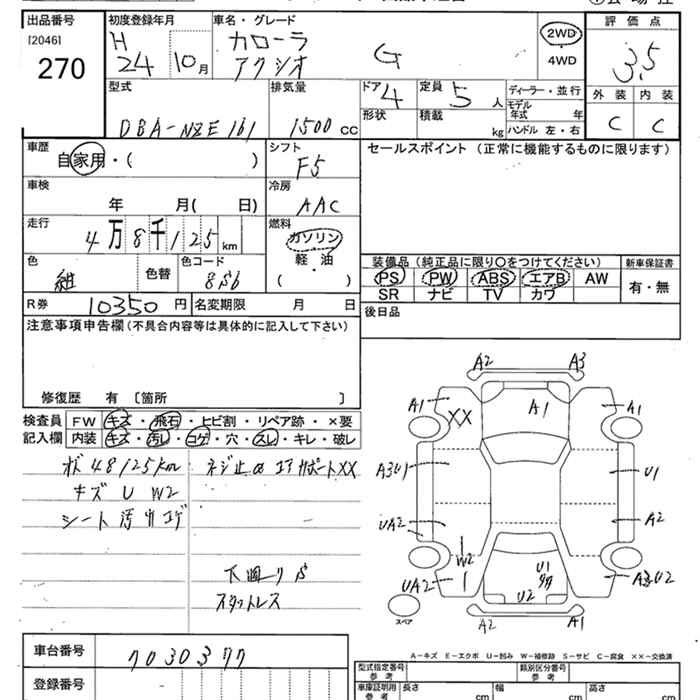 出品番号 初度登録年月 車名・グレード 2WD 評価点
[2046] H カローラ G ・
270 24 10月 アクシオ 4WD 3.5
型式 排気量 ドア 4 定員 5 人 ディーラー・並行 外装 内装
形状 積載 kg モデル年式 年 C C
DBA-NZE161 1500 CC ハンドル 左・右
車歴 自家用・( ) シフト F5 セールスポイント (正常に機能するものに限ります)
車検 年 月( 日) 冷房 AAC
走行 4万8千125km 燃料 ガソリン
軽・油
( )
色 紺 色替 色コード 8S6
装備品 (純正品に限り○をつけてください) 新車保証書
PS PW ABS エアB AW 有・無
SR ナビ TV カワ
R券 10350円 名変期限 月 日 後日品
注意事項申告欄 (不具合内容等は具体的に記入して下さい)
修復歴 有 [箇所 ]
検査員 FW キズ・飛石・ヒビ割・リペア跡・×要
記入欄 内装 キズ・汚レ・コゲ・穴・スレ・キレ・破レ
48125km ネジ止め コアサポートXX
キズ U W2
シート 汚レ コゲ
下廻りS
スタットレス
A2 A3
A1 XX A1 A1
A3U1 U1
UA2 A2
W2
UA2 U1 U2
A2 A1
スペア
A-キズ E-エクボ U-凹み W-補修跡 S-サビ C-腐食 ××-交換済
車台番号 7030377
登録番号 -
型式指定番号 参考 類別区分番号 参考
車庫証明用 参考 長さ cm 幅 cm 高さ cm